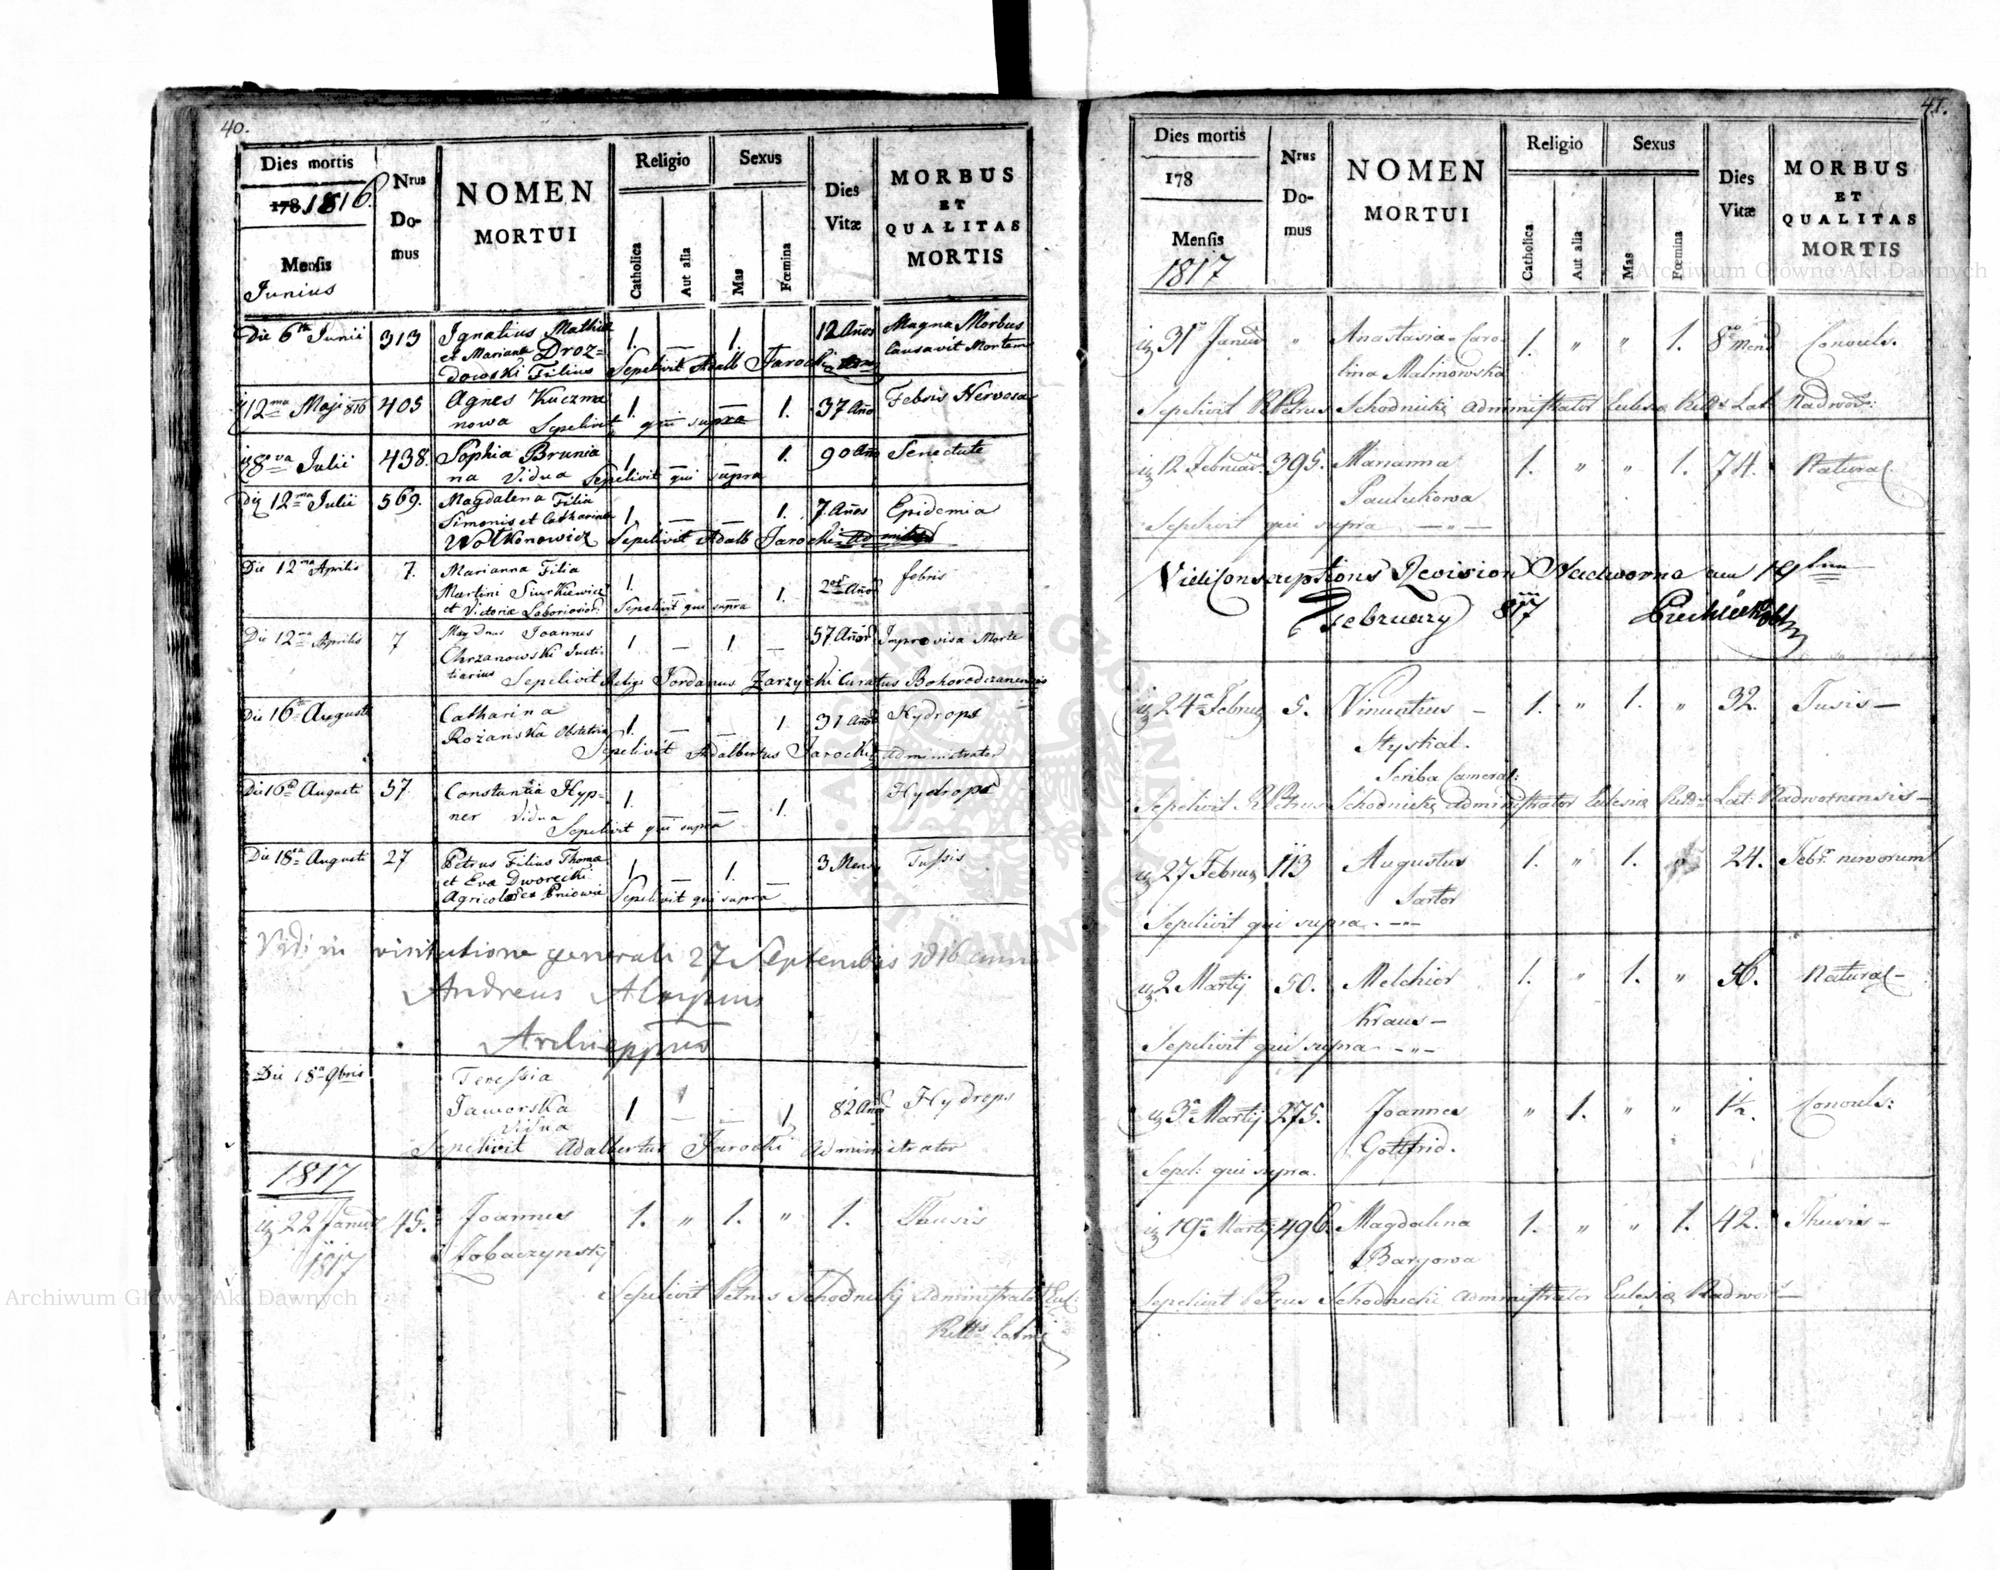 40.
Dies mortis
178 1816.
Mensis
Junius
Nrus
Do-
mus
NOMEN
MORTUI
Religio
Catholica
Aut alia
Sexus
Mas
Fœmina
Dies
Vitæ
MORBUS
ET
QUALITAS
MORTIS
Die 6ta Junii 313 Ignatius Mathiæ 1. — 1. 12 Años Magna Morbus
et Marianna Droz= causavit Mortem
dowski Filius Sepelivit Adalb Jarocki
12ma Maji 816 405 Agnes Kuczma 1. — — 1. 37 Año Febris Nervosa
nowa Sepelivit qui supra
8va Julii 438. Sophia Brunia 1. — — 1. 90 Año Senectute
na Vidua Sepelivit qui supra
Die 12ma Julii 569. Magdalena Filia 1. — — 1. 7. Años Epidemia
Simonis et Catharina
Wolkonowicz Sepelivit Adalb Jarocki
Die 12ma Aprilis 7. Marianna Filia 1. — — 1. 2 Año febris
Martini Siurkiewicz
et Victoriæ Laborios Sepelivit qui supra
Die 12ma Aprilis 7 Joannes 1 — 1 — 57 Año Improvisa Morte
Chrzanowski Justi-
tiarius Sepelivit Relig: Jordanus Zarzycki Curatus Bohorodczanensis
Die 16ta Augusti Catharina 1. — — 1. 31 Año Hydrops
Rożańska Obstetrix
Sepelivit Adalbertus Jarocki Administrator
Die 16ta Augusti 57. Constantia Hyp= 1. — — 1. Hydrops
ner Vidua
Sepelivit qui supra
Die 18va Augusti 27 Petrus Filius Thoma 1. — 1. — 3 Mens Tussis
et Eva Dworecki
Agricola Sepelivit qui supra
Vidi in visitatione generali 27 Septembris 1816 anni
Andreas Aloysius
Archieppus
Die 18a 9bris Teressia
Jaworska 1 — — 1 82 Año Hydrops
Vidua
Sepelivit Adalbertus Jarocki Administrator
1817
22 Januar 45. Joannes 1. „ 1. „ 1. Thusis
1817 Lobaczynski
Sepelivit Petrus Schodnicki Administrator Eccl:
Ritts Latini
41.
Dies mortis
178
Mensis
1817
Nrus
Do-
mus
NOMEN
MORTUI
Religio
Catholica
Aut alia
Sexus
Mas
Fœmina
Dies
Vitæ
MORBUS
ET
QUALITAS
MORTIS
31 Januar „ Anastasia Caro 1. „ „ 1. 8 Mens Convuls.
lina Malinowska
Sepelivit R Petrus Schodnicki Administrator Eclesiæ Ritts Lat: Nadwor:
12 Februar: 395. Marianna 1. „ „ 1. 74. Natural.
Paulukowa
Sepelivit qui supra — „ —
Vidi Conscriptions Revision Nadworna am 19ten
February 817
24a Febru 5. Vincentius — 1. „ 1. „ 32. Tusis —
Hyskal.
Scriba Cameral:
Sepelivit R Petrus Schodnicki Administrator Eclesiæ Ritts Lat: Nadwornensis —
27 Febru 113 Augustus 1. „ 1. „ 24. Febr. nervorum
Sartor
Sepelivit qui supra — „ —
2 Martij 50. Melchior 1. „ 1. „ 56. Natural —
Kraus —
Sepelivit qui supra — „ —
3a Martij 275. Joannes „ 1. „ „ 1½. Convuls:
Gottfrid.
Sepel: qui supra.
19a Martij 496. Magdalena 1. „ „ 1. 42. Thusis —
Baryowa
Sepelivit Petrus Schodnicki Administrator Eclesiæ Nadwor —
Archiwum Główne Akt Dawnych
Archiwum Główne Akt Dawnych
ARCHIWUM GŁÓWNE AKT DAWNYCH